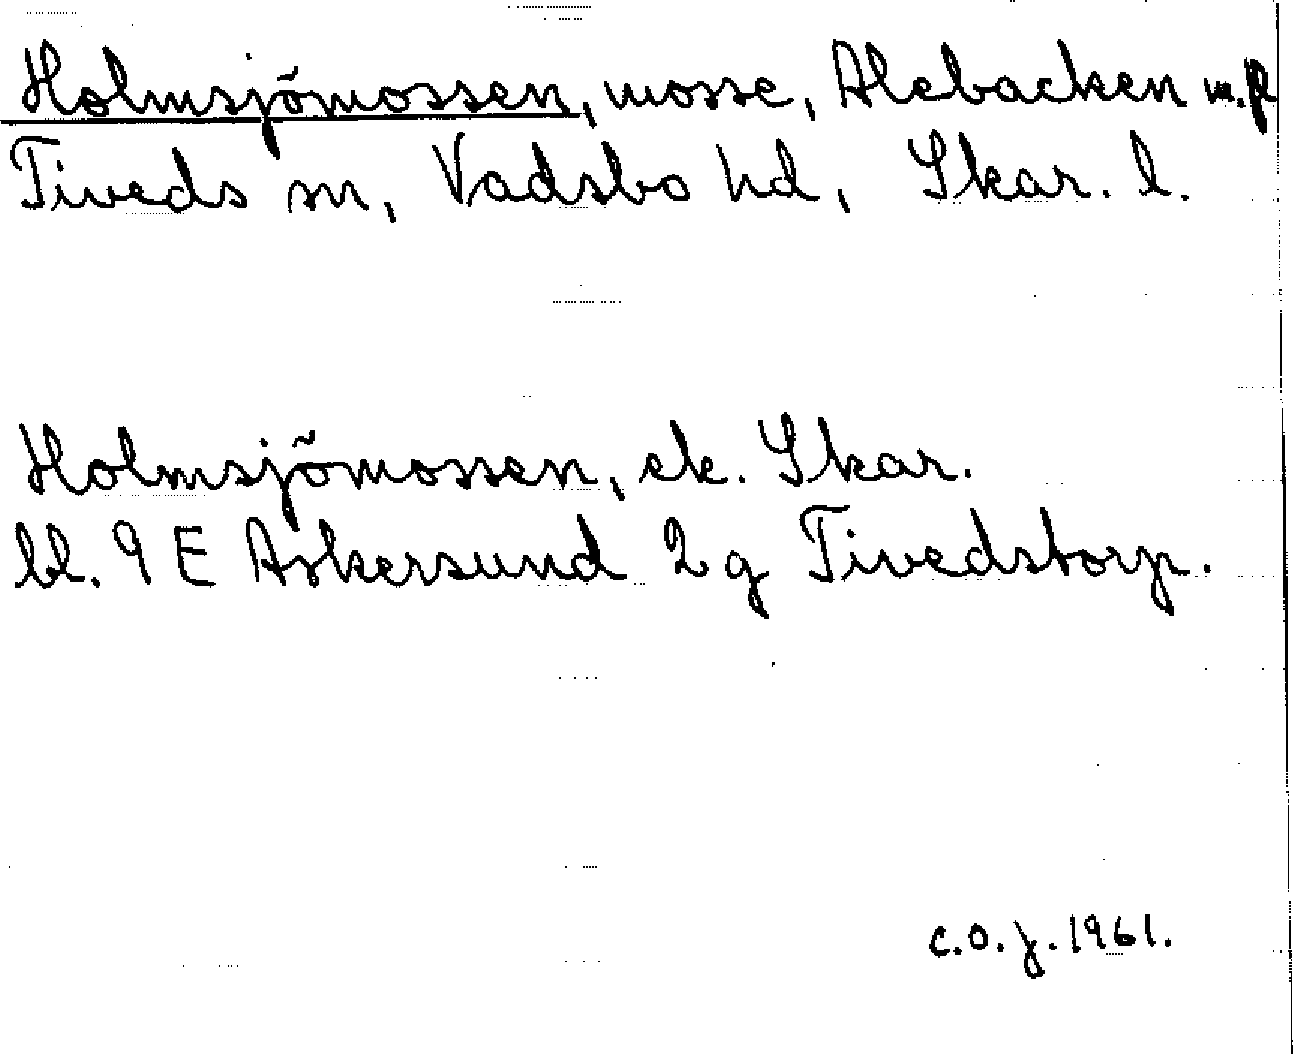 Holmsjömossen, mosse, Alebacken m.fl
Tiveds sn, Vadsbo hd, Skar. l.
Holmsjömossen, ek. Skar.
bl. 9 E Askersund 2g Tivedstorp.
C.O.J. 1961.